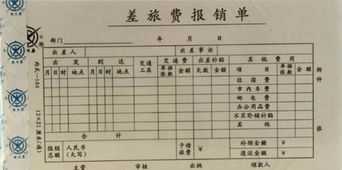 差旅费报销单
部门 年 月 日
出差人 出差事由
出发 到达 交通工具 交通费 出差补贴 其他费用
月 日 时 地点 月 日 时 地点 单据张数 金额 天数 金额 项目 单据张数 金额
住宿费
市内车费
邮电费
办公用品费
不买卧铺补贴
其他
合计
报销总额 人民币（大写） 预借旅费 ￥ 补领金额 ￥
退还金额 ￥
主管 审核 出纳 领款人
附件
张